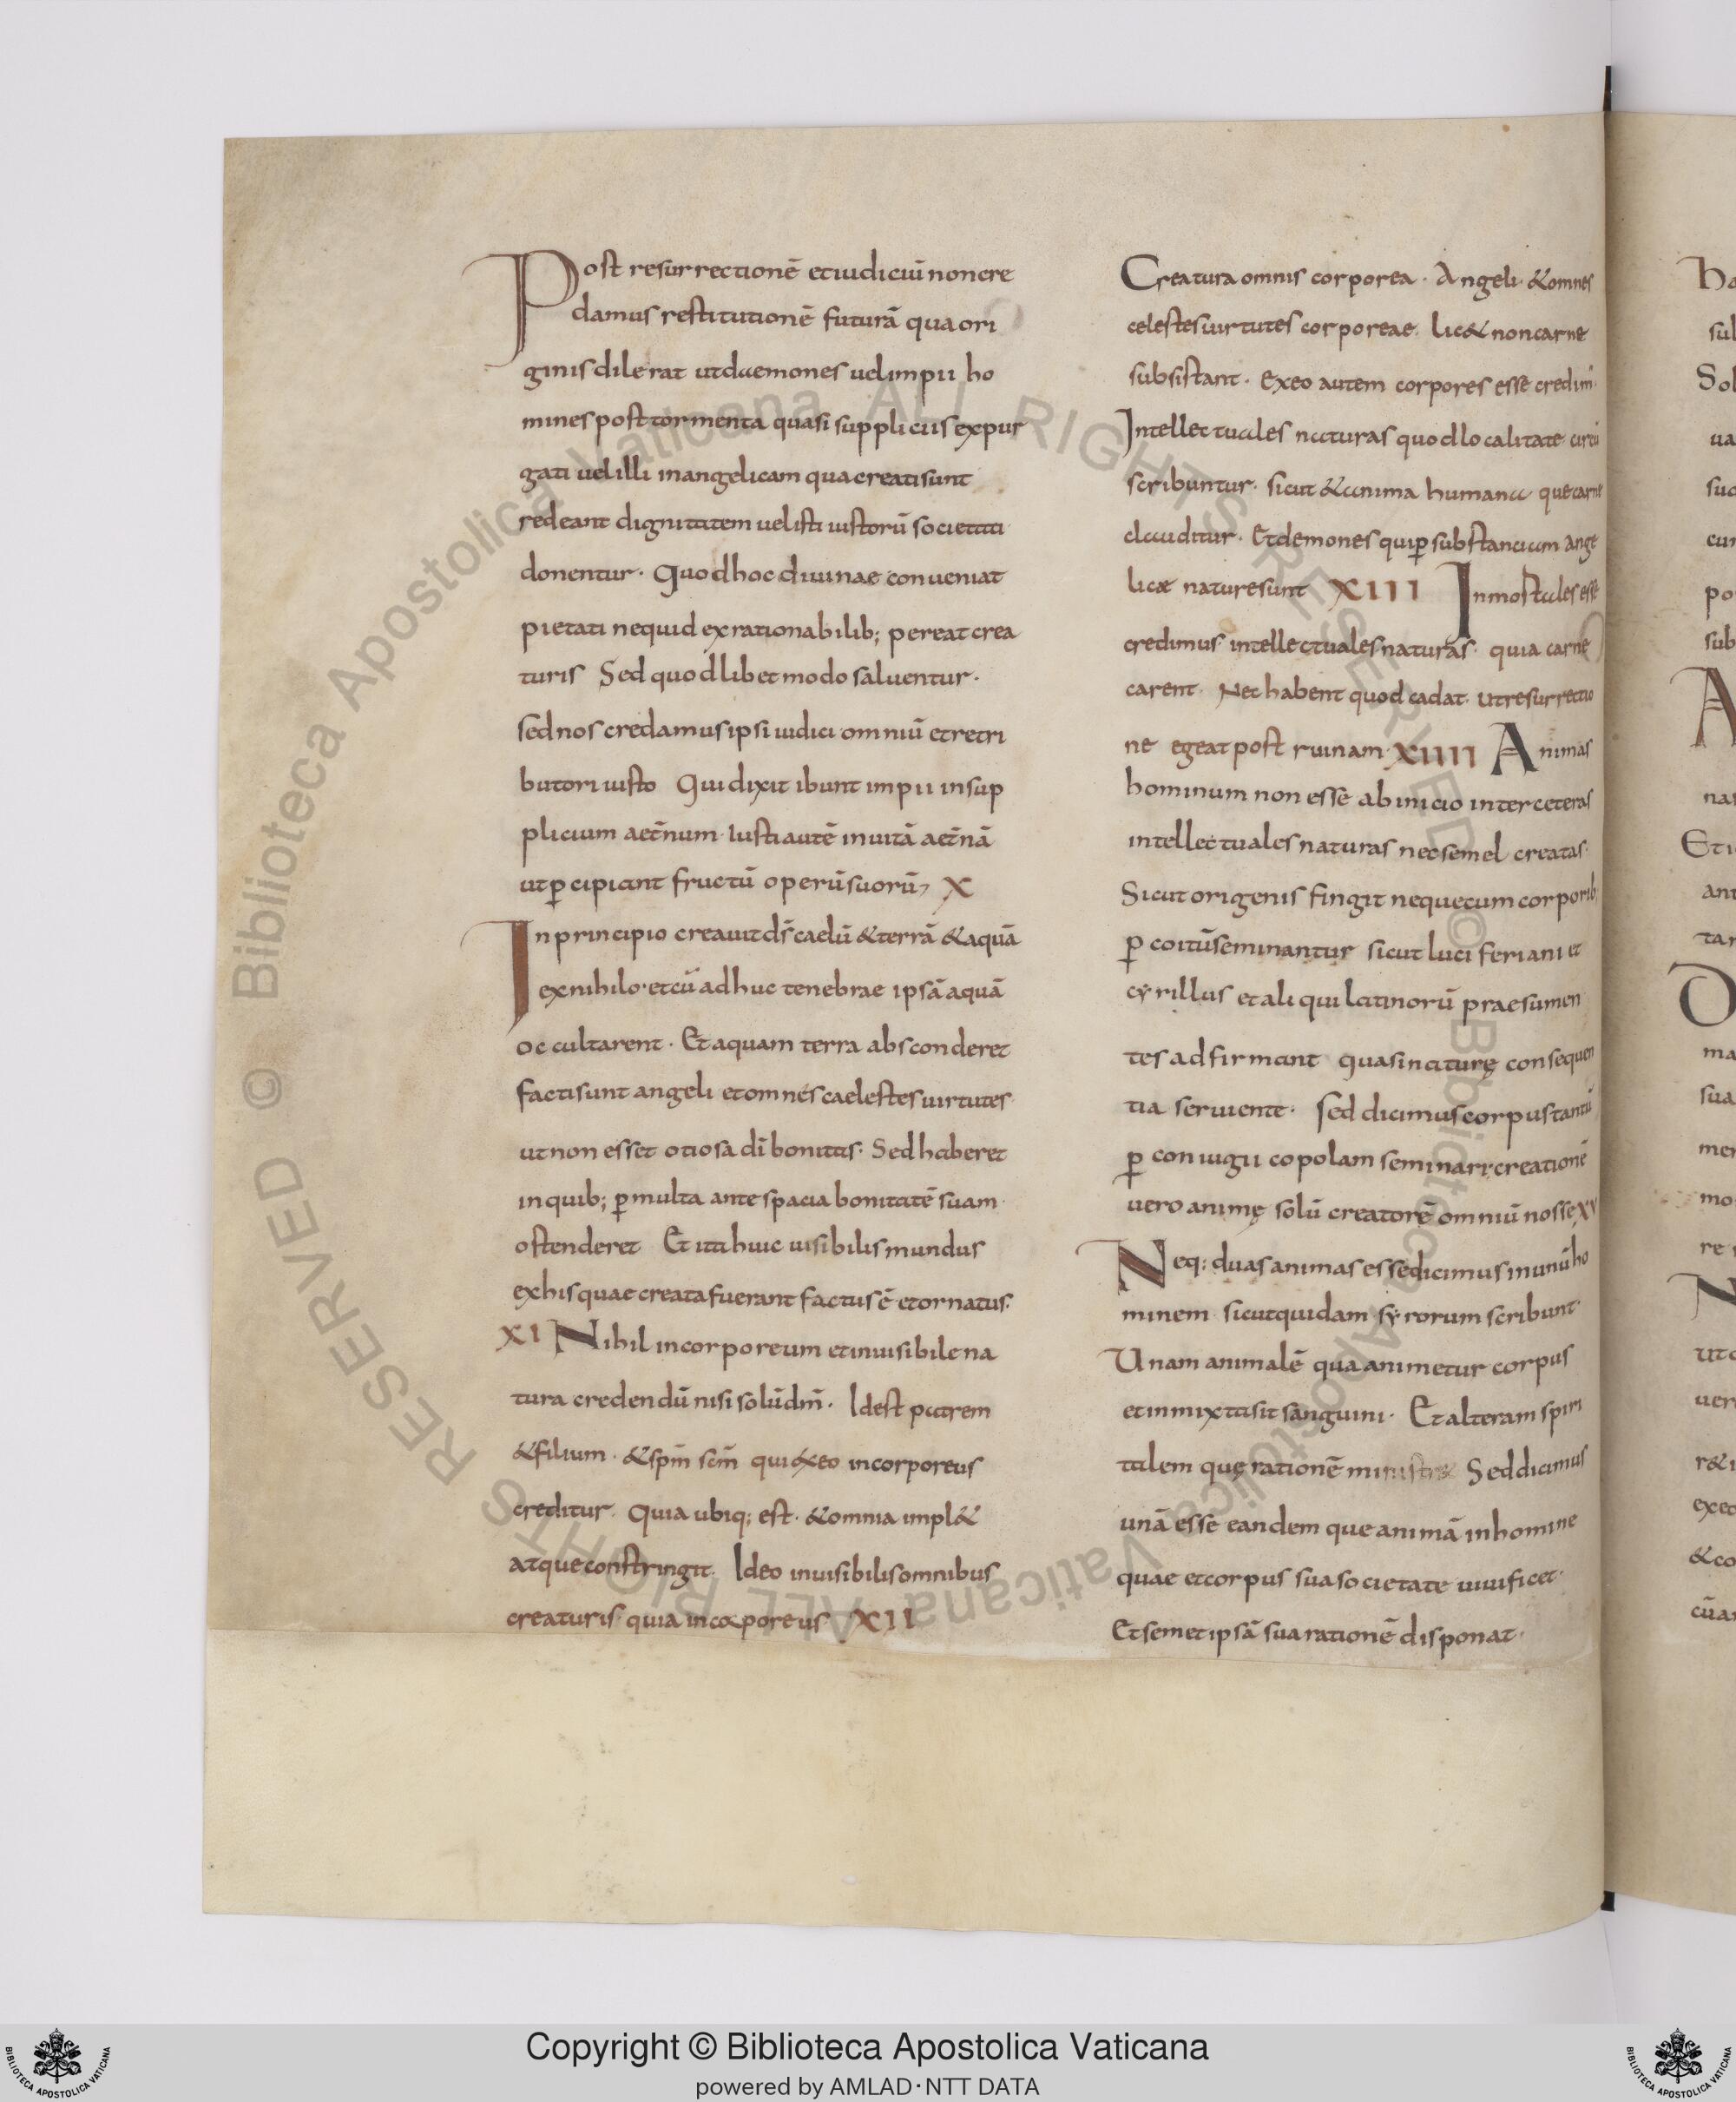 Post resurrectionē etiudiciū noncre
damus restitutionē futurā qua ori
ginis dilerat utdaemones uelimpii ho
mines post tormenta quasi suppliciis expur
gati uel illi inangelicam qua creati sunt
redeant dignitatem uelisti iustorū societati
donentur · Quod hoc diuinae conueniat
pietati nequid ex rationabilib; pereat crea
turis Sed quodlibet modo saluentur ·
sed nos credamus ipsi iudici omniū et retri
butori iusto Qui dixit ibunt impii in sup
plicium aet̄num · Iusti autē in uitā aet̄nā
ut ꝑcipiant fructū operū suorū, X
In principio creauit ds̄ caelū & terrā & aquā
ex nihilo · et cū adhuc tenebrae ipsā aquā
occultarent · Et aquam terra absconderet
facti sunt angeli et omnes caelestes uirtutes
ut non esset otiosa dī bonitas · Sed haberet
in quib; ꝑ multa ante spacia bonitatē suam
ostenderet Et ita huic uisibilis mundus
ex his quae creata fuerant factus ē et ornatus.
XI Nihil incorporeum et inuisibile na
tura credendū nisi solū dm̄ · Id est patrem
& filium · & spm̄ scm̄ qui ex eo incorporeus
creditur. Quia ubiq; est · & omnia impl&
atque constringit. Ideo inuisibilis omnibus
creaturis · quia incorporeus XII
Creatura omnis corporea · Angeli · & omnes
celestes uirtutes corporeae. lic& non carne
subsistant · Ex eo autem corpores esse credim̄·
Intellectuales naturas quod localitate circū
scribuntur · sicut & anima humana que carne
clauditur · Et demones qui ꝑ substanciam ange
licae nature sunt XIII Inmostales esse
credimus intellectuales naturas · quia carne
carent · Nec habent quod cadat. ut resurrectio
ne egeat post ruinam · XIIII Animas
hominum non esse ab inicio inter ceteras
intellectuales naturas nec semel creatas·
Sicut origenis fingit neque cum corporib;
ꝑ coitū seminantur sicut luciferiani et
cyrillus et aliqui latinorū praesumen
tes adfirmant quasi naturę consequen
tia seruiente · Sed dicimus corpus tantū
ꝑ coniugii copolam seminari; creationē
uero animę solū creatorē omniū nosse XV
Neq; duas animas esse dicimus in unū ho
minem sicut quidam syrorum scribunt
Unam animalē qua animetur corpus
et inmixta sit sanguini · Et alteram spiri
talem quę rationē ministr& Sed dicimus
unā esse eandem que animā in homine
quae et corpus sua societate uiuificet·
Et semetipsā sua rationē disponat·
© Biblioteca Apostolica Vaticana ALL RIGHTS RESERVED © Biblioteca Apostolica Vaticana ALL RIGHTS RESERVED
Copyright © Biblioteca Apostolica Vaticana
powered by AMLAD·NTT DATA
BIBLIOTECA APOSTOLICA VATICANA
BIBLIOTECA APOSTOLICA VATICANA